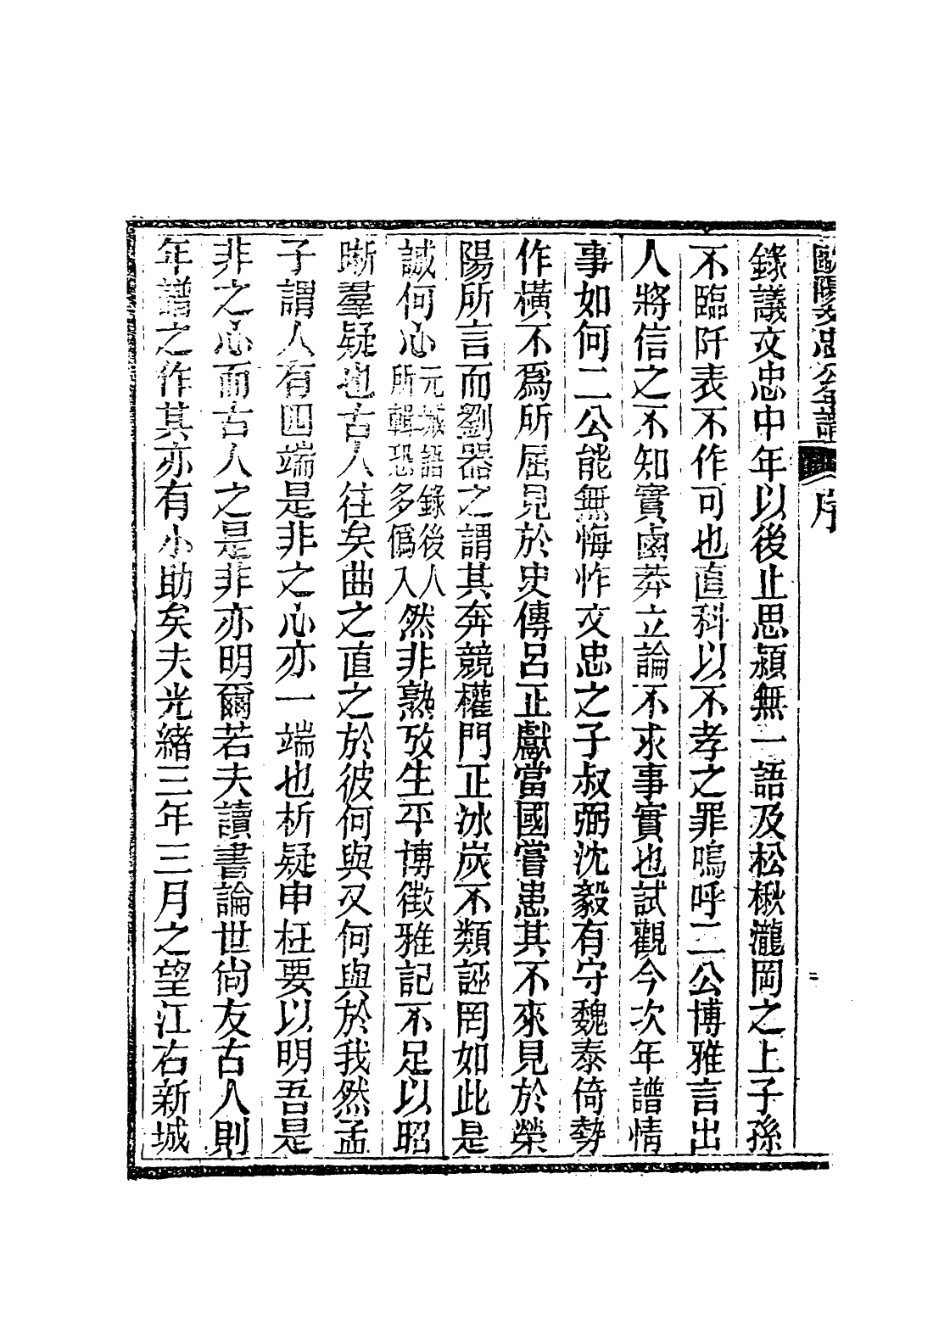 歐陽文忠公年譜 序
錄議文忠中年以後止思潁無一語及松楸瀧岡之上子孫
不臨阡表不作可也直科以不孝之罪嗚呼二公博雅言出
人將信之不知實鹵莽立論不求事實也試觀今次年譜情
事如何二公能無悔怍文忠之子叔弼沈毅有守魏泰倚勢
作橫不爲所屈見於史傳呂正獻當國嘗患其不來見於榮
陽所言而劉器之謂其奔競權門正冰炭不類誣罔如此是
誠何心元城語錄後人所輯恐多僞入然非熟攷生平博徵雅記不足以昭
晣羣疑也古人往矣曲之直之於彼何與又何與於我然孟
子謂人有四端是非之心亦一端也析疑申枉要以明吾是
非之心而古人之是非亦明爾若夫讀書論世尙友古人則
年譜之作其亦有小助矣夫光緒三年三月之望江右新城
二